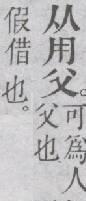 从用父。可為人
父也
假借也。